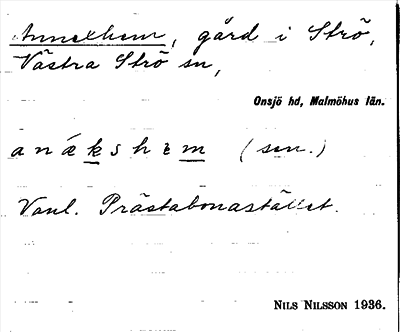 Annexhem, gård i Strö,
Västra Strö sn,
Onsjö hd, Malmöhus län.
anæks hem (sen.)
Vanl. Prästabonastället.
NILS NILSSON 1936.